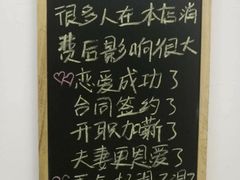 很多人在本店消
费后影响很大
恋爱成功了
合同签约了
开职加薪了
夫妻更恩爱了